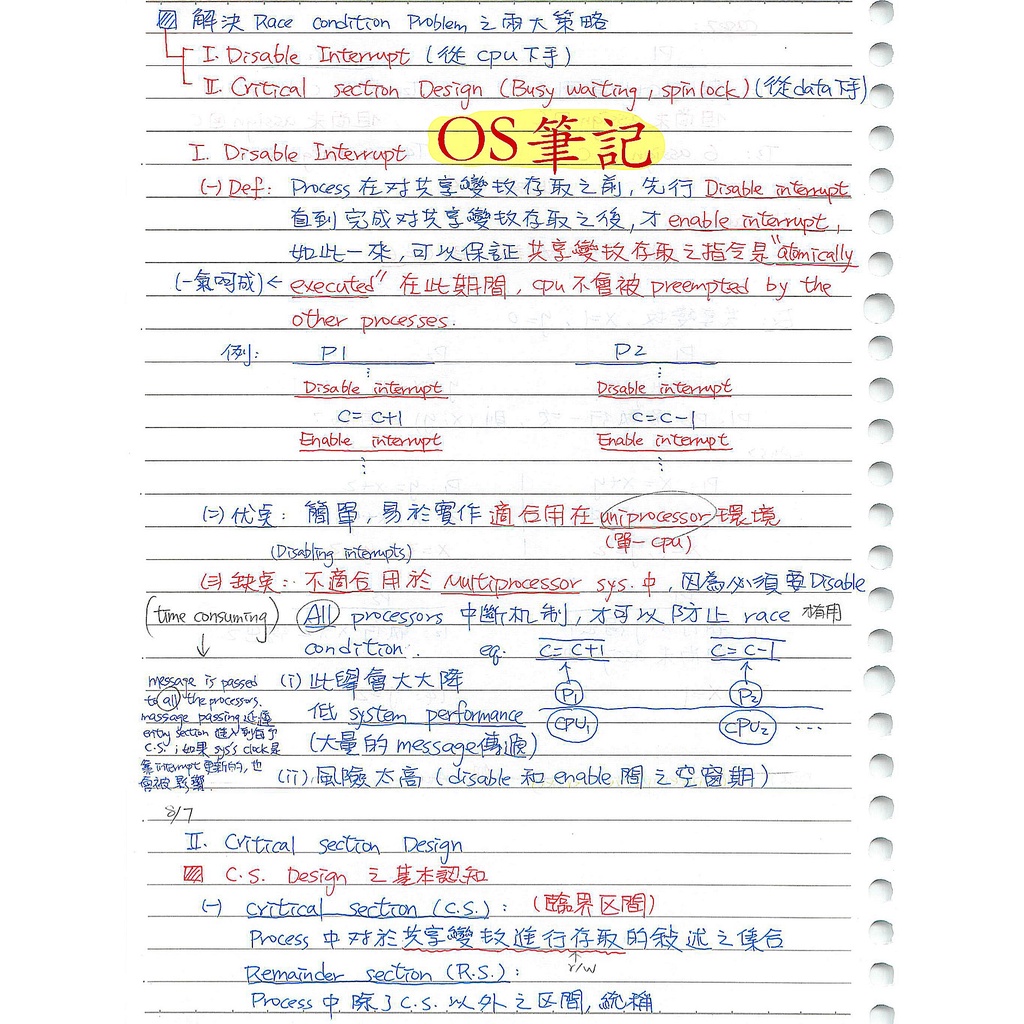 解決 Race condition Problem 之兩大策略
I. Disable Interrupt (從 cpu 下手)
II. Critical section Design (Busy waiting, spinlock) (從data下手)
OS筆記
I. Disable Interrupt
(一) Def: Process 在对共享變数存取之前, 先行 Disable interrupt
直到完成对共享變数存取之後, 才 enable interrupt,
如此一來, 可以保証 共享變数存取之指令是 "atomically
(一氣呵成) ← executed" 在此期間, cpu 不會被 preempted by the
other processes.
例: P1 P2
⋮ ⋮
Disable interrupt Disable interrupt
C= C+1 C=C-1
Enable interrupt Enable interrupt
⋮ ⋮
(二) 优点: 簡單, 易於實作 適合用在 uniprocessor 環境
(Disabling interrupts) (單一 cpu)
(三) 缺点: 不適合用於 Multiprocessor sys. 中, 因為必須要 Disable
(time consuming) All processors 中斷机制, 才可以防止 race 有用
↓ condition. eg. C= C+1 C= C-1
message is passed (i) 此舉會大大降 P1 P2
to all the processors. 低 system performance CPU1 CPU2 ...
massage passing 延遲 (大量的 message 傳遞)
entry section 進入到各了
C.S.; 如果 sys's clock是
靠 interrupt 更新的, 也
會被影響. (ii) 風險太高 (disable 和 enable 間之空窗期)
8/7
II. Critical section Design
C.S. Design 之基本認知
(一) Critical section (C.S.): (臨界区間)
Process 中对於共享變数進行存取的敍述之集合
r/w
Remainder section (R.S.):
Process 中 除了 C.S. 以外之区間, 統稱